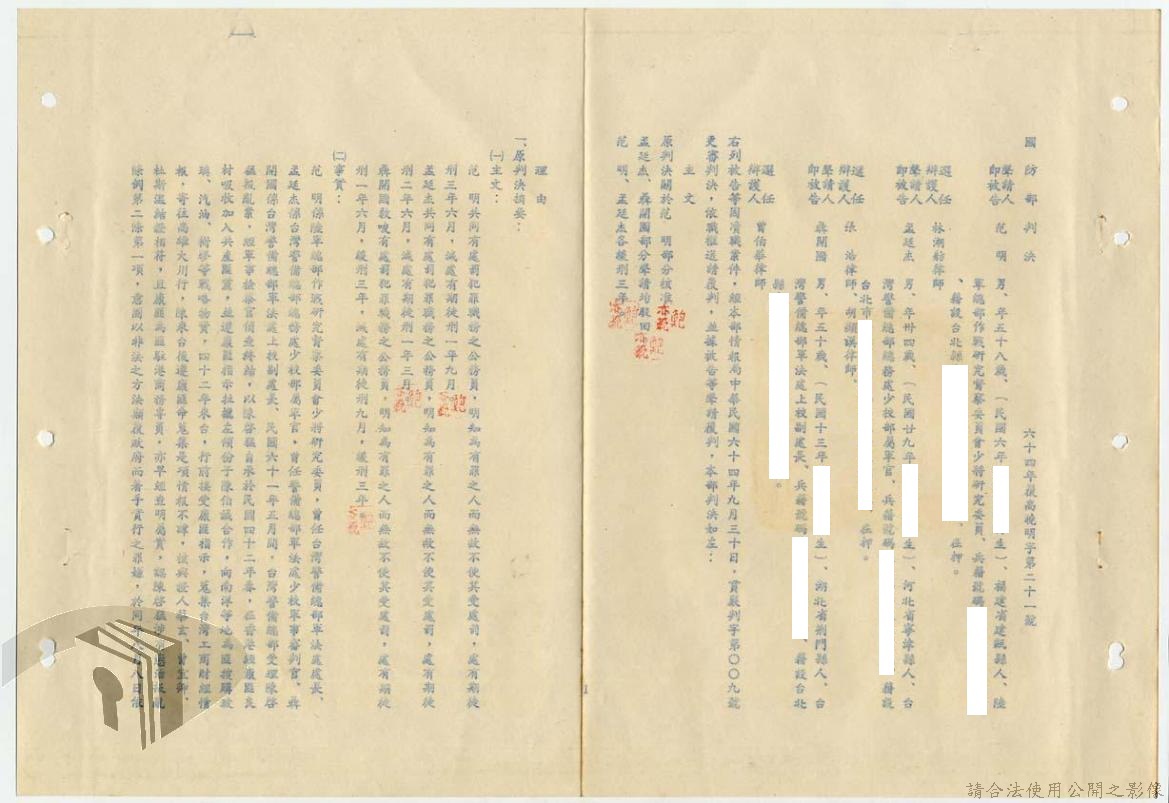 國防部判決
六十四年復高晚明字第二十一號
聲請人
即被告
范明
男、年五十八歲、(民國六年
生)、福建省建甌縣人、陸
軍總部作戰研究督察委員會少將研究委員、兵籍號碼
、籍設台北縣
、在押。
選任
辯護人
林潮舫律師
聲請人
即被告
孟廷杰
男、年卅四歲、(民國廿九年
生)、河北省寧津縣人、台
灣警備總部總務處少校部屬軍官、兵籍號碼
籍設
台北市
、在押。
選任
辯護人
張浩律師、胡
律師、
聲請人
即被告
蔣開國
男、年五十歲、(民國十三年
生)、湖北省荊門縣人、台
灣警備總部軍法處上校副處長、兵籍號碼
、籍設台北
縣
。
選任
辯護人
曾伯華律師
右列被告等因瀆職案件,經本部情報局中華民國六十四年九月三十日,貫嚴判字第〇〇九號
更審判決,依職權送請覆判,並據被告等聲請覆判,本部判決如左:
主文
原判決關於范明部分核准
孟廷杰、蔣開國部分聲請均駁回
范明、孟廷杰各緩刑三年
理由
一、原判決摘要:
㈠主文:
范明共同有處罰犯罪職務之公務員,明知為有罪之人而無故不使其受處罰,處有期徒
刑三年六月,減處有期徒刑一年九月
孟廷杰共同有處罰犯罪職務之公務員,明知為有罪之人而無故不使其受處罰,處有期徒
刑二年六月,減處有期徒刑一年三月
蔣開國教唆有處罰犯罪職務之公務員,明知為有罪之人而無故不使其受處罰,處有期徒
刑一年六月,緩刑三年,減處有期徒刑九月,緩刑三年
㈡事實:
范明係陸軍總部作戰研究督察委員會少將研究委員,曾任台灣警備總部軍法處處長、
孟廷杰係台灣警備總部總務處少校部屬軍官,曾任警備總部軍法處少校軍事審判官、蔣
開國係台灣警備總部軍法處上校副處長、民國六十一年五月間,台灣警備總部受理陳啓
猛叛亂案,經軍事檢察官偵查終結,以陳啓猛自承於民國四十二年春,在香港經康匪良
材吸收加入共產匪黨,並遵康匪指示杜
左傾份子陳伯誠合作,向南洋等地為匪搜購玻
璃、汽油、樹膠等戰略物資,四十二年來台,行前接受康匪指示,蒐集台灣工商財經情
報,寄往高雄大川行,陳來台後遵康匪命蒐集是項情報不諱,核與證人蔡玄、曾宜
、
杜斯
結證相符,且康匪為匪駐港商務專員,亦早經查明屬實,認陳啓猛涉有懲治叛亂
條例第二條第一項,意圖以非法之方法顛覆政府而着手實行之罪嫌,於同年八月八日依
1
請合法使用公開之影像